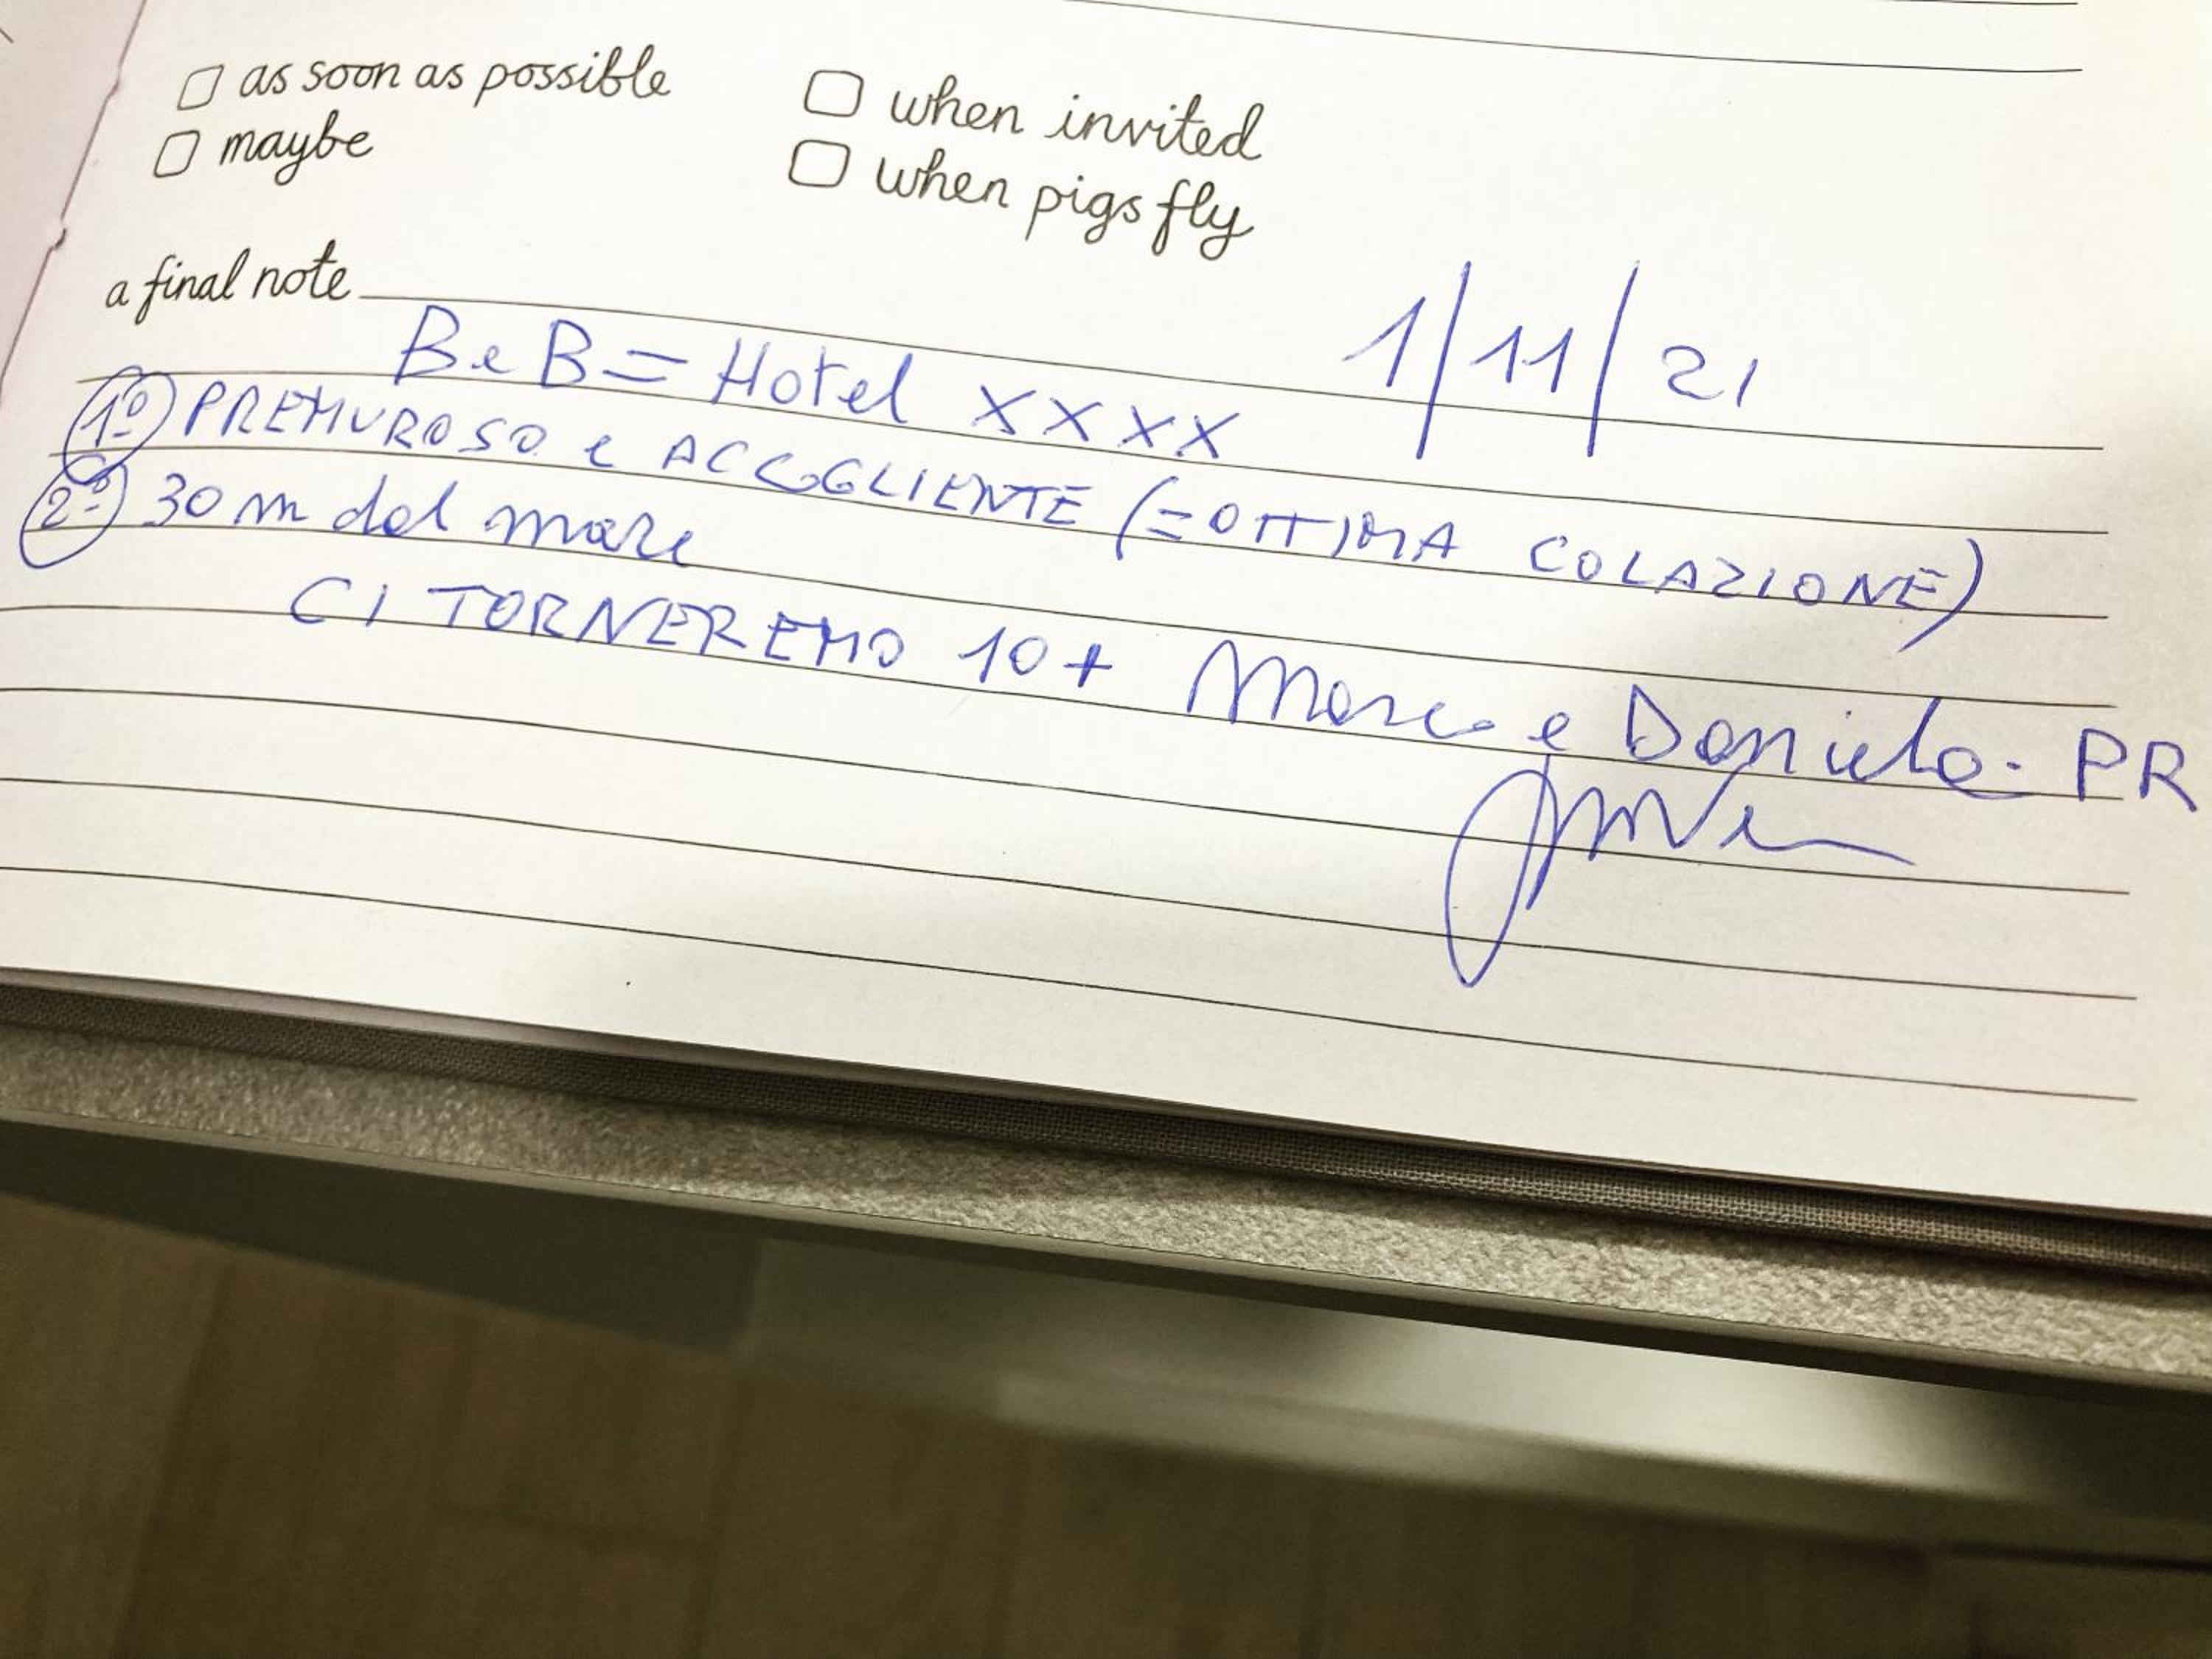 as soon as possible
when invited
maybe
when pigs fly
a final note
1/11/21
B e B = Hotel XXXX
1º PREMUROSO e ACCOGLIENTE (=OTTIMA COLAZIONE)
2º 30 m dal mare
CI TORNEREMO 10+ Marco e Daniela - PR